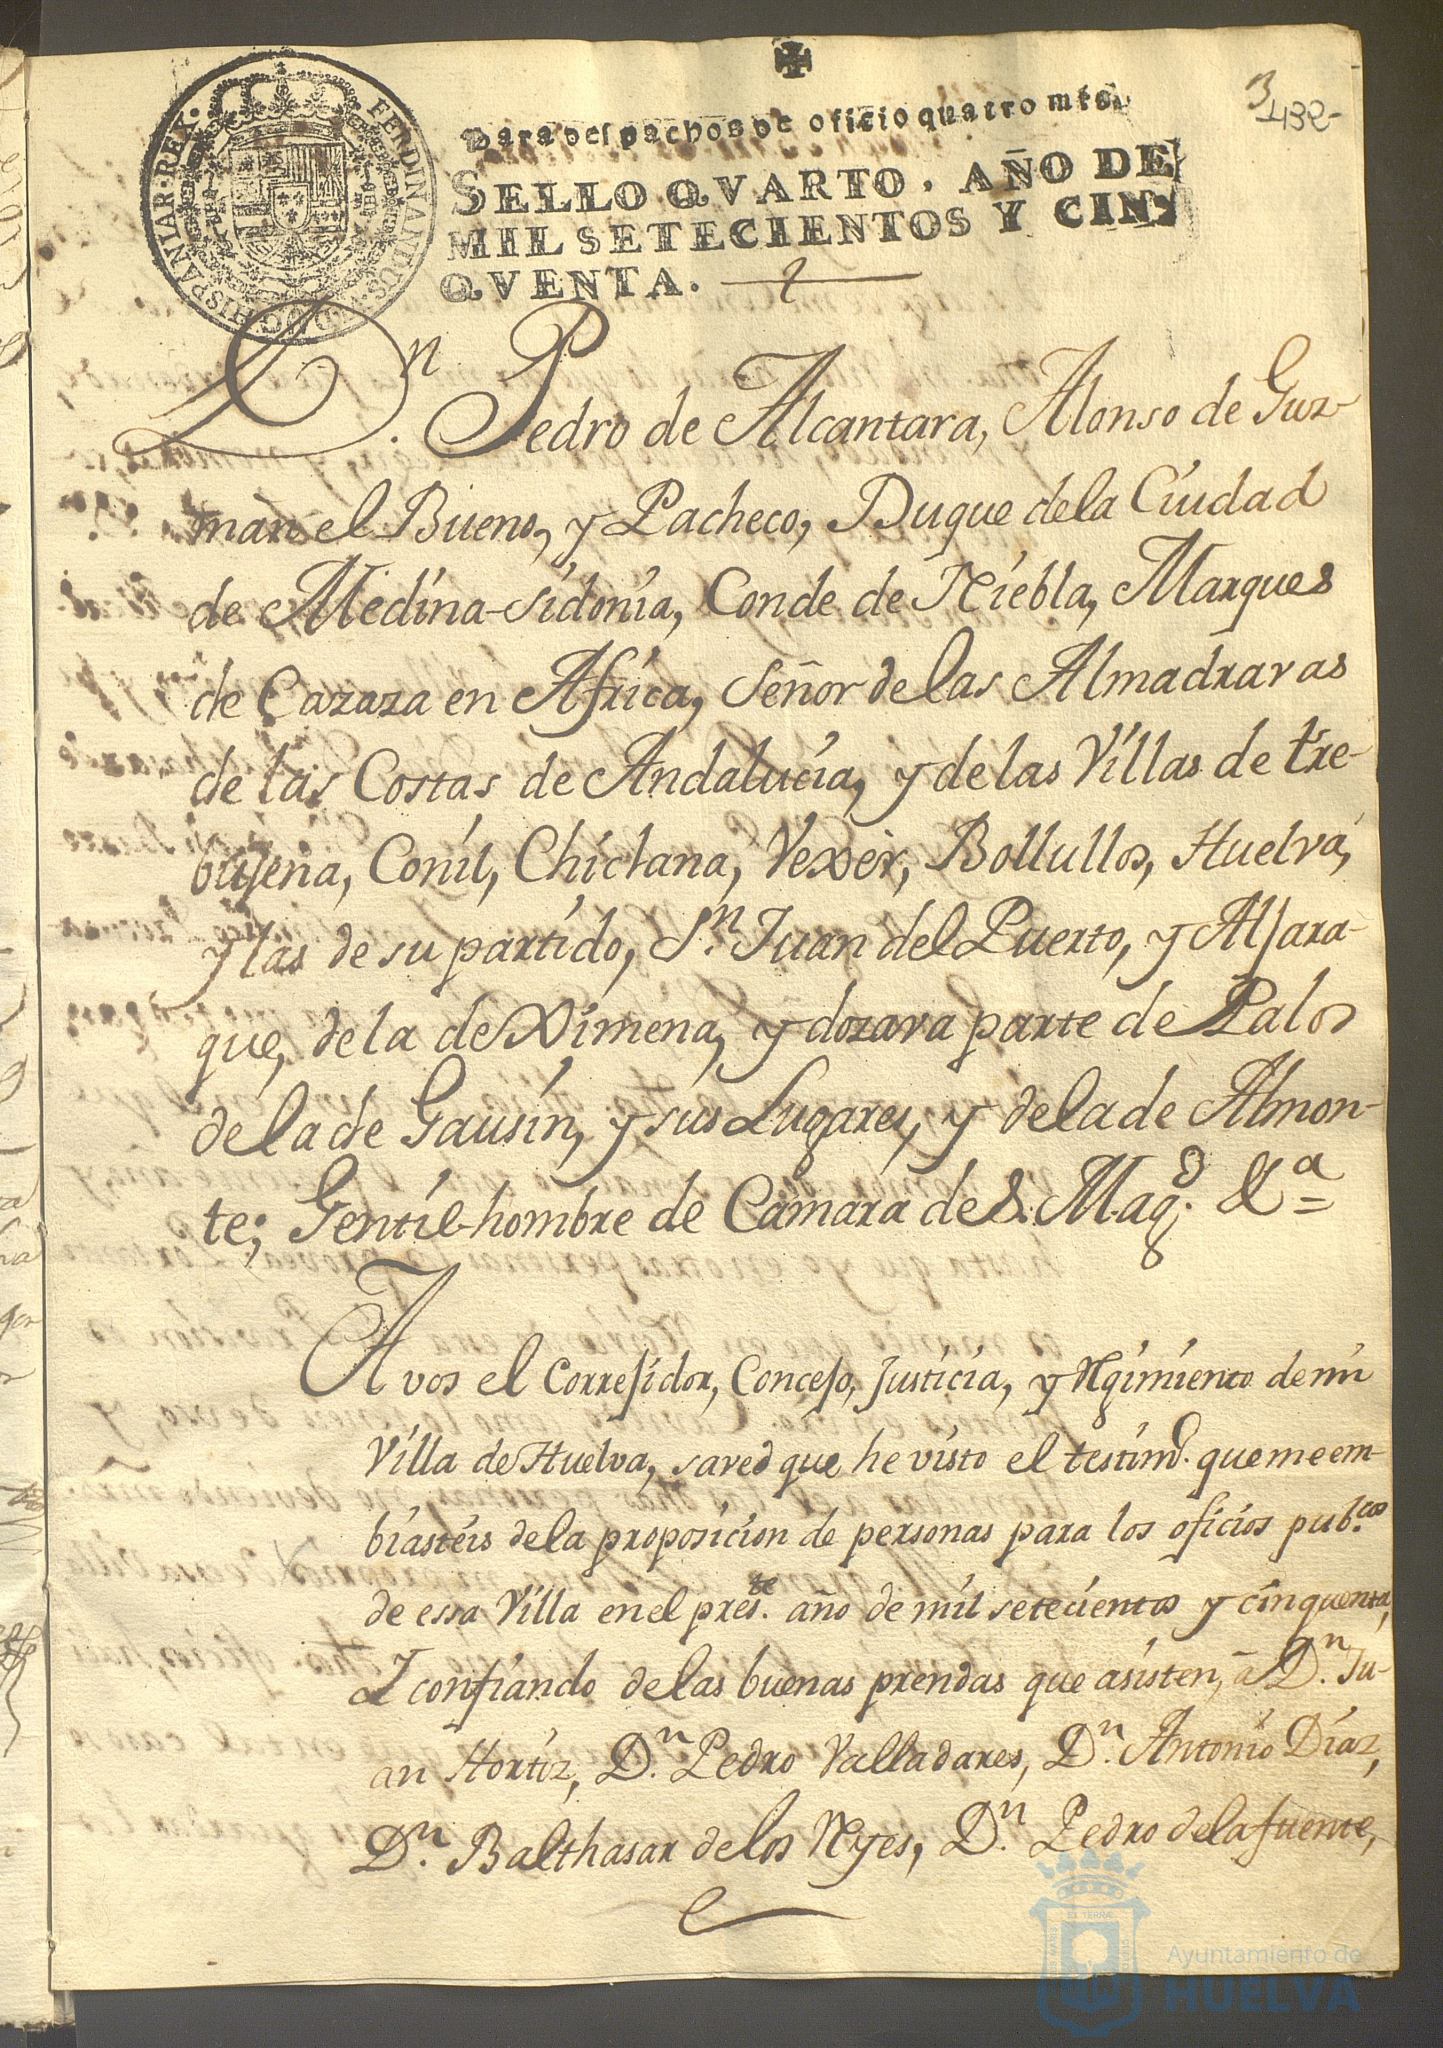 3
432
FERDINANDUS·VI·D·G·HISPANIAR·REX·
Para despachos de oficio quatro mrs.
SELLO QVARTO, AÑO DE
MIL SETECIENTOS Y CIN-
QVENTA.
Dn. Pedro de Alcantara, Alonso de Guz-
màn el Bueno, y Pacheco, Duque dela Ciudad
de Medina-Sidonia, Conde de Niebla, Marques
de Cazaza en Africa, Señor de las Almadravas
de las Costas de Andalucia, y de las Villas de tre-
bujena, Conil, Chiclana, Vexèr, Bollullos, Huelva,
y las de su partido, Sn. Juan del Puerto, y Aljara-
que, de la de Ximena, y dozava parte de Palos
de la de Gausin, y sus Lugares, y de la de Almon-
te; Gentil-hombre de Camara de S. Magd. &a=
A vos el Corregidor, Concejo, Justicia, y Rgimiento de mi
Villa de Huelva, saved que he visto el testimo. que me em-
biasteis de la proposicion de personas para los oficios pubcos.
de essa Villa en el preste. año de mil setecientos y cinquenta,
I confiando de las buenas prendas que asisten, à Dn. Ju-
an Hortiz, Dn. Pedro Valladares, Dn. Antonio Diaz,
Dn. Balthasar de los Ryes, Dn. Pedro de la fuente,
Ayuntamiento de
HUELVA